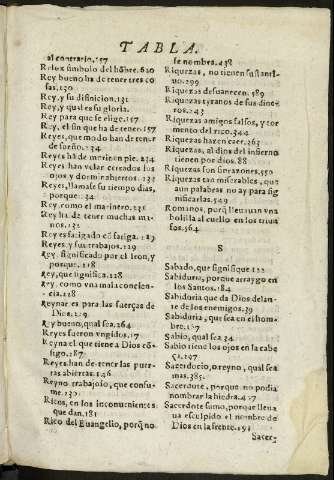 TABLA.
al contrario. 157
Relox simbolo del hõbre. 620
Rey bueno ha de tener tres co
sas. 130
Rey, y su difinicion. 131
Rey, y qual es su gloria.
Rey para que se elige. 157
Rey, el fin que ha de tener. 157
Reyes, que modo han de tener
de sueño. 134
Reyes ha de morir en pie. 234
Reyes han velar cerrados los
ojos y dormir abiertos. 133
Reyes, llamase su tiempo dias,
porque. 134
Rey, como el marinero. 135
Rey ha de tener muchas ma
nos. 132
Rey es fatigado cõ fatiga. 129
Reyes, y sus trabajos. 129
Rey, significado por el leon, y
porque. 218
Rey, que significa. 128
Rey, como vna mala concien-
cia. 228
Reynar es para las fuerças de
Dios. 129
Rey bueno, qual sea. 264
Reyes fueron vngidos. 17
Reyna el que tiene a Dios cõ-
sigo. 187
Reyes han de tener las puer-
tas abiertas. 146
Reyno trabajoso, que consu-
me. 130
Ricos, en los inconuenientes
que dan. 181
Rico del Euangelio, porq̃ no
se nombra. 438
Riquezas, no tienen sustanti-
uo. 299
Riquezas desuanecen. 589
Riquezas tyranos de sus dine
ros. 243
Riquezas amigos falsos, y tor
mento del rico. 344
Riquezas hazen caer. 261
Riquezas, al dios del infierno
tienen por dios. 88
Riquezas son sinrazones. 350
Riquezas tan miserables, que
aun palabras no ay para sig
nificarlas. 549
Romanos, porq̃ lleuauan vna
bolilla al cuello en los triun
fos. 564
S
Sabado, que signifique 122
Sabiduria, porque arraygo en
los Santos. 184
Sabiduria que da Dios delan-
te de los enemigos. 39
Sabiduria, que sea en el hom-
bre. 107
Sabio, qual sea 34
Sabio tiene los ojos en la cabe
ça. 197
Sacerdocio, o reyno, qual sea
mas. 385.
Sacerdote, porque no podia
nombrar la hiedra. 427
Sacerdote sumo, porque lleua
ua esculpido el nombre de
Dios en la frente. 191
Sacer-